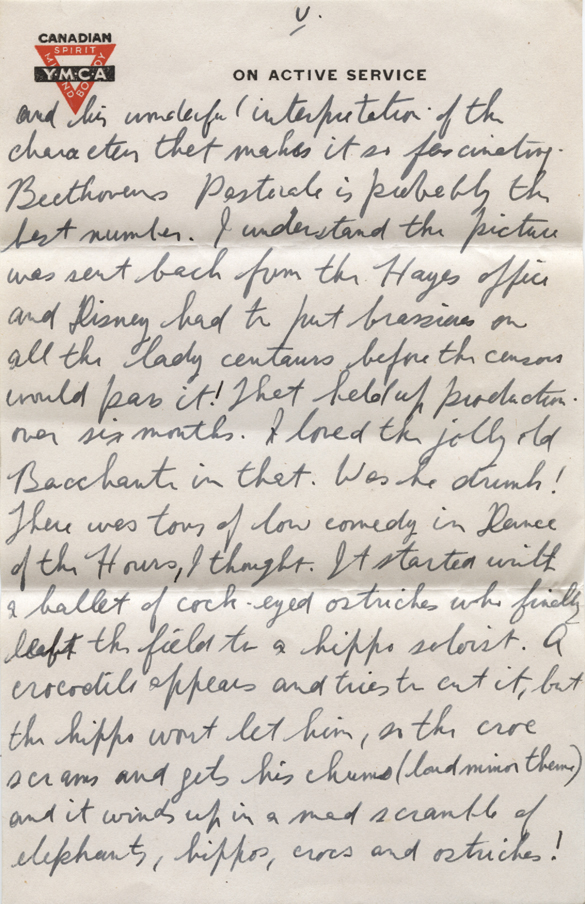 V.
CANADIAN
SPIRIT
MIND
BODY
Y·M·C·A
ON ACTIVE SERVICE
and his wonderful interpretation of the
characters that makes it so fascinating.
Beethovens Pastorale is probably the
best number. I understand the picture
was sent back from the Hayes office
and Disney had to put brassieres on
all the lady centaurs before the censors
would pass it! That held up production
over six months. I loved the jolly old
Bacchante in that. Was he drunk!
There was tons of low comedy in Dance
of the Hours, I thought. It started with
a ballet of cock-eyed ostriches who finally
left the field to a hippo soloist. A
crocodile appears and tries to cut it, but
the hippo wont let him, so the croc
scrams and gets his chums (loud minor theme)
and it winds up in a mad scramble of
elephants, hippos, crocs and ostriches!